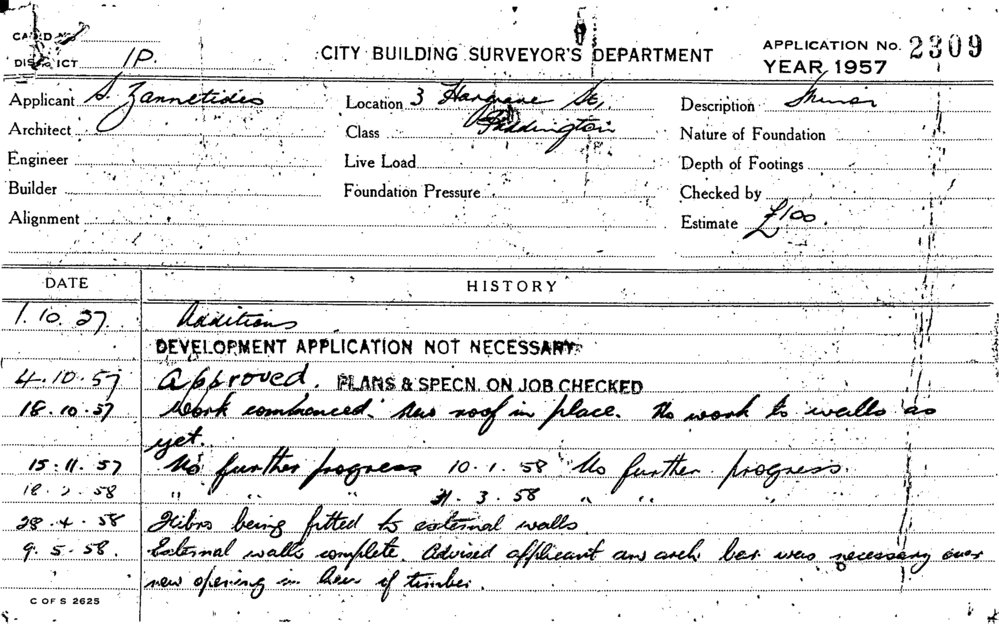 CARD No
DISTRICT 1P.
CITY BUILDING SURVEYOR'S DEPARTMENT
APPLICATION No. 2309
YEAR 1957
Applicant S. Zannetides
Location 3 Hargrave St,
Description Minor
Architect
Class Paddington
Nature of Foundation
Engineer
Live Load
Depth of Footings
Builder
Foundation Pressure
Checked by
Alignment
Estimate £100.
DATE HISTORY
1.10.57 Additions
DEVELOPMENT APPLICATION NOT NECESSARY
4.10.57 Approved. PLANS & SPECN. ON JOB CHECKED
18.10.57 Work commenced. New roof in place. No work to walls as
yet.
15.11.57 No further progress 10.1.58 No further progress.
18.2.58 " " " 21.3.58 " " "
28.4.58 Fibro being fitted to external walls
9.5.58. External walls complete. Advised applicant an arch bar was necessary over
new opening in lieu of timber.
C OF S 2625